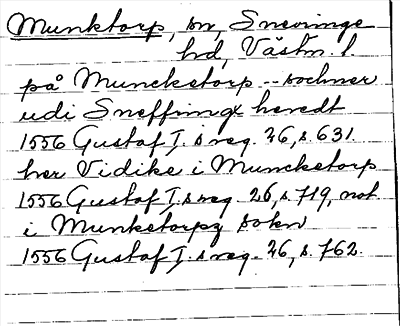 Munktorp, sn, Snevringe
hd, Västm. l.
på Muncketorp -- sochner
udi Sneffringx heredt
1556 Gustaf I:s reg. 26, s. 631.
her Vidike i Muncketorp
1556 Gustaf I:s reg. 26, s. 719, not
i Munketorps sokn
1556 Gustaf I:s reg. 26, s. 762.